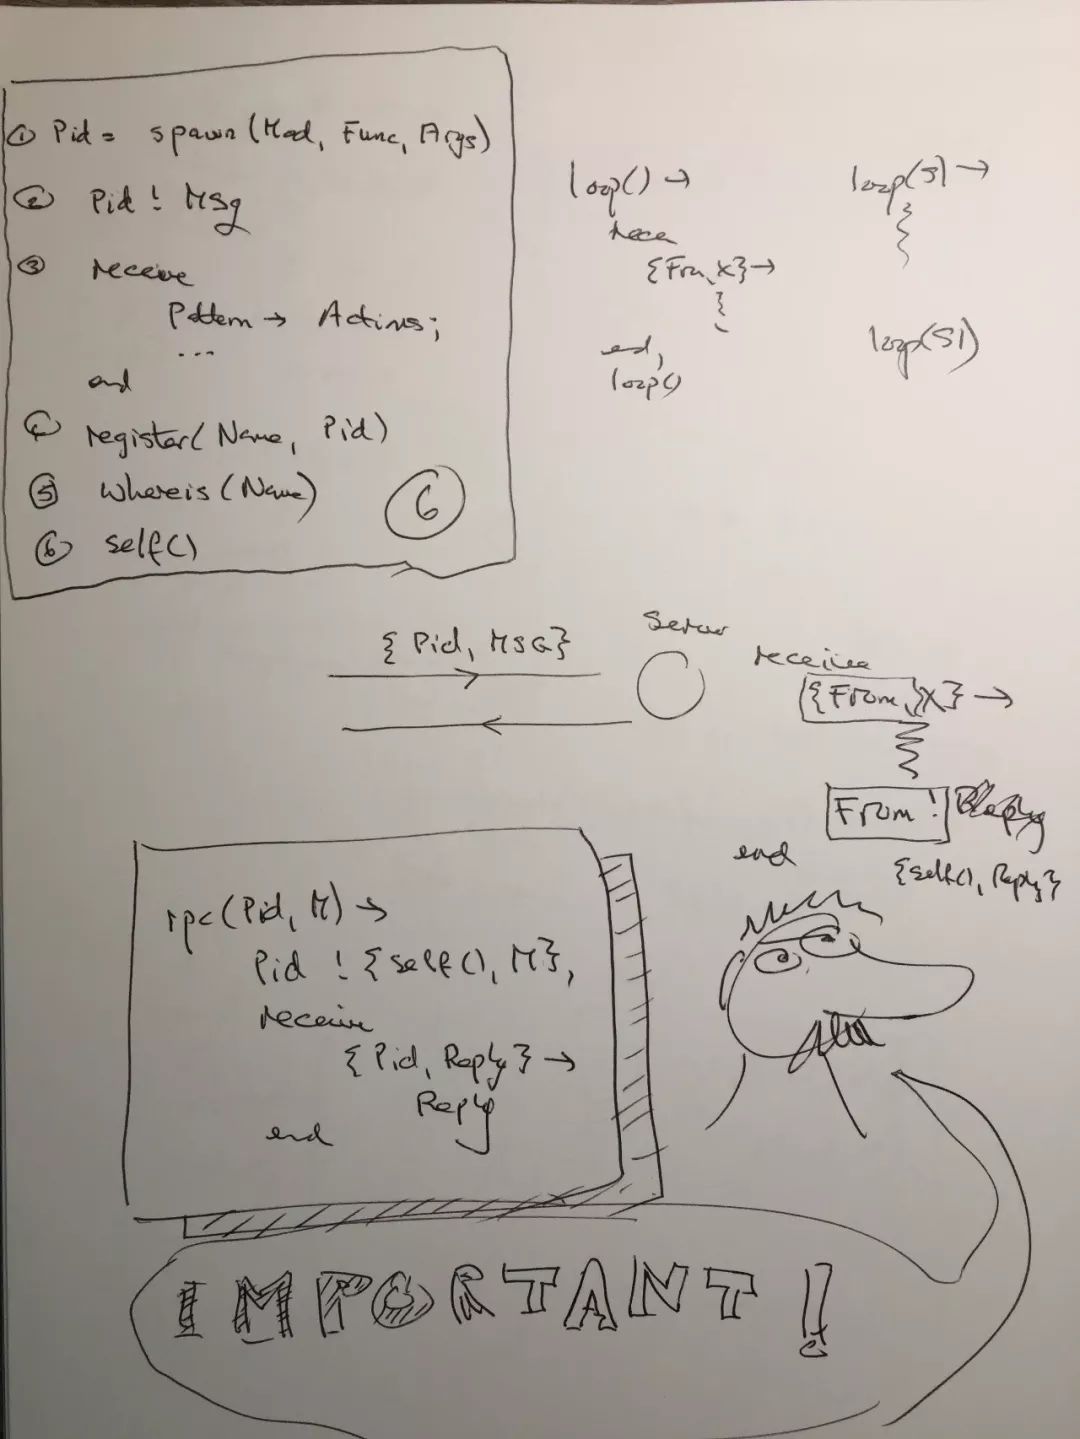 ① Pid = spawn(Mod, Func, Args)
② Pid ! Msg
③ receive
Pattern → Actions;
...
end
④ register(Name, Pid)
⑤ whereis(Name)
⑥ self()
⑥
loop() →
rece
{From, X} →
end,
loop()
loop(S) →
loop(S1)
{Pid, MSG}
Server
receive
{From, X} →
From ! 
{self(), Reply}
end
rpc(Pid, M) →
Pid ! {self(), M},
receive
{Pid, Reply} →
Reply
end
IMPORTANT!